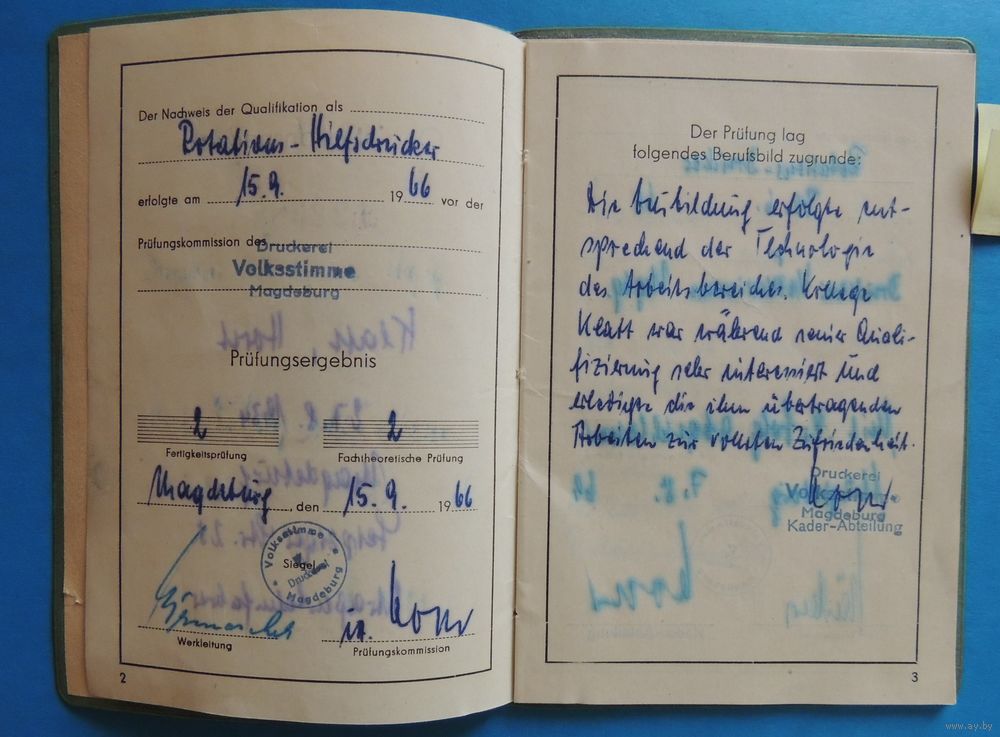 Der Nachweis der Qualifikation als
Rotations-Hilfsdrucker
erfolgte am 15.9. 1966 vor der
Prüfungskommission des
Druckerei
Volksstimme
Magdeburg
Prüfungsergebnis
2 2
Fertigkeitsprüfung Fachtheoretische Prüfung
Magdeburg, den 15.9. 1966
Volksstimme
Siegel
Druckerei
Magdeburg
Werkleitung Prüfungskommission
2
Der Prüfung lag
folgendes Berufsbild zugrunde:
Die Ausbildung erfolgte ent-
sprechend der Technologie
des Arbeitsbereiches. Kollege
Klatt war während seiner Quali-
fizierung sehr interessiert und
erledigte die ihm übertragenden
Arbeiten zur vollsten Zufriedenheit.
Druckerei
Magdeburg
Kader-Abteilung
3
www.ay.by